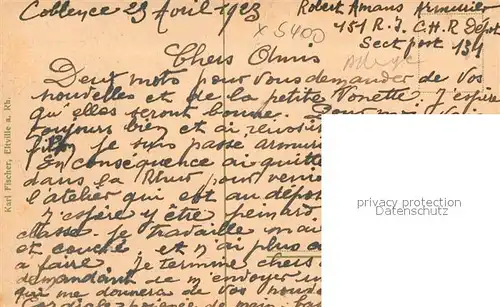 Coblence 23 Avril 1923
Robert Amans Armurier
451 R. I. C.H.R Dépot
Sect post 134
x 5400
Chers Amis
Deux mots pour vous demander de vos
nouvelles et de la petite Vonette. J'espère
qu'elles seront bonne. Pour moi
toujours bien et ai
je suis passé armu
En conséquence ai quitté
dans la Rhur pour venir
l'atelier qui est au dépôt
J'espère y être
classe. Je travaille
et couché et n'ai plus
a faire. Je termine chers
demandant de m'envoyer
qui me donnera de vos nou
Karl Fischer, Eltville a. Rh.
privacy protection
Datenschutz